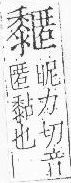 䵒
昵力切音
匿黏也